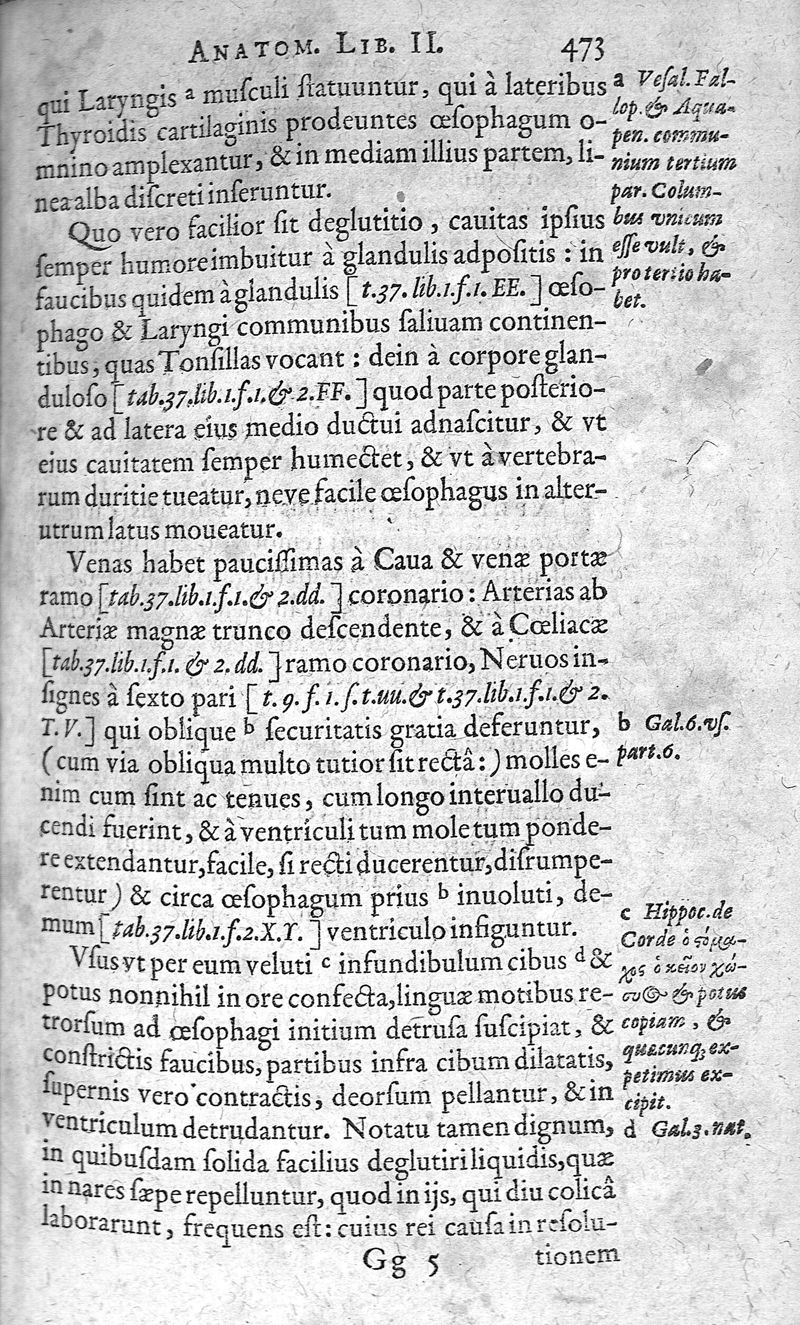 ANATOM. LIB. II. 473
qui Laryngis ᵃ muſculi ſtatuuntur, qui à lateribus
Thyroidis cartilaginis prodeuntes œſophagum o-
mnino amplexantur, & in mediam illius partem, li-
nea alba diſcreti inſeruntur.
Quo vero facilior ſit deglutitio, cauitas ipſius
ſemper humore imbuitur à glandulis adpoſitis : in
faucibus quidem à glandulis [t.37. lib.1.f.1. EE.] œſo-
phago & Laryngi communibus ſaliuam continen-
tibus, quas Tonſillas vocant : dein à corpore glan-
duloſo [tab.37.lib.1.f.1.& 2.FF.] quod parte poſterio-
re & ad latera eius medio ductui adnaſcitur, & vt
eius cauitatem ſemper humectet, & vt à vertebra-
rum duritie tueatur, neve facile œſophagus in alter-
utrum latus moueatur.
Venas habet pauciſſimas à Caua & venæ portæ
ramo [tab.37.lib.1.f.1.& 2.dd.] coronario : Arterias ab
Arteriæ magnæ trunco deſcendente, & à Cœliacæ
[tab.37.lib.1.f.1. & 2. dd.] ramo coronario, Neruos in-
ſignes à ſexto pari [t. 9. f. 1. ſ.t.uu.& t.37.lib.1.f.1.& 2.
T.V.] qui oblique ᵇ ſecuritatis gratia deferuntur,
(cum via obliqua multo tutior ſit rectâ :) molles e-
nim cum ſint ac tenues, cum longo interuallo du-
cendi fuerint, & à ventriculi tum mole tum ponde-
re extendantur, facile, ſi recti ducerentur, diſrumpe-
rentur) & circa œſophagum prius ᵇ inuoluti, de-
mum [tab.37.lib.1.f.2.X.Y.] ventriculo infiguntur.
Vſus vt per eum veluti ᶜ infundibulum cibus ᵈ &
potus nonnihil in ore confecta, linguæ motibus re-
trorſum ad œſophagi initium detruſa ſuſcipiat, &
conſtrictis faucibus, partibus infra cibum dilatatis,
ſupernis vero contractis, deorſum pellantur, & in
ventriculum detrudantur. Notatu tamen dignum,
in quibuſdam ſolida facilius deglutiri liquidis, quæ
in nares ſæpe repelluntur, quod in ijs, qui diu colicâ
laborarunt, frequens eſt : cuius rei cauſa in reſolu-
Gg 5 tionem
a Veſal. Fal-
lop. & Aqua-
pen. commu-
nium tertium
par. Colum-
bus vnicum
eſſe vult, &
pro tertio ha-
bet.
b Gal.6.vſ.
part.6.
c Hippoc. de
Corde ὁ ϛόμα-
χος ὁ
& potus
copiam, &
quæcunq; ex-
petimus ex-
cipit.
d Gal.3.nat.